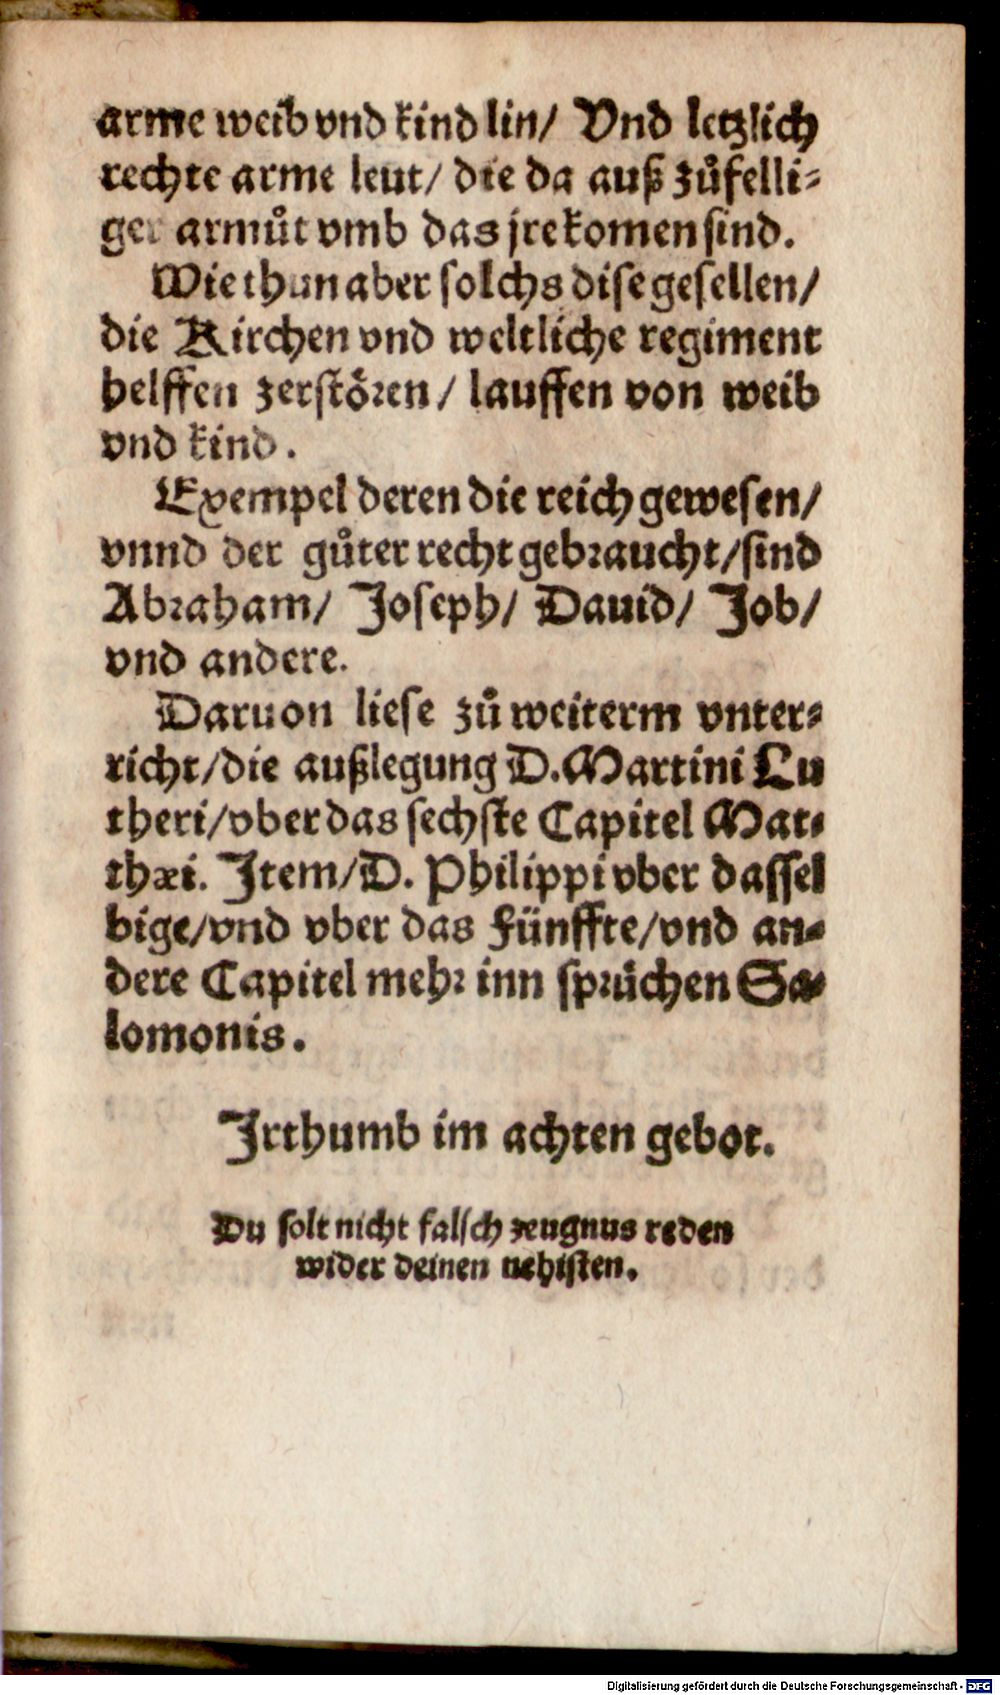 arme weib vnd kind lin/ Vnd letzlich
rechte arme leut/ die da auß zůfelli⸗
ger armůt vmb das jre komen sind.
Wie thun aber solchs dise gesellen/
die Kirchen vnd weltliche regiment
helffen zerstören/ lauffen von weib
vnd kind.
Exempel deren die reich gewesen/
vnnd der gůter recht gebraucht/sind
Abraham/ Joseph/ Dauid/ Job/
vnd andere.
Daruon liese zů weiterm vnter⸗
richt/die außlegung D. Martini Lu
theri/vber das sechste Capitel Mat⸗
thæi. Item/D. Philippi vber dassel
bige/vnd vber das Fünffte/vnd an⸗
dere Capitel mehr inn sprüchen Sa⸗
lomonis.
Irthumb im achten gebot.
Du solt nicht falsch zeugnus reden
wider deinen nehisten.
Digitalisierung gefördert durch die Deutsche Forschungsgemeinschaft - DFG